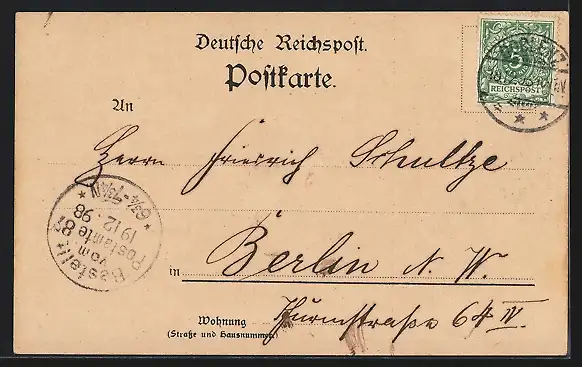 Deutsche Reichspost.
Postkarte.
5
REICHSPOST
An
Herrn Friedrich Schultze
Bestellt
vom
Postamte 87
19 12. 98
in Berlin N. W.
Thurmstraße 64 IV.
Wohnung
(Straße und Hausnummer)